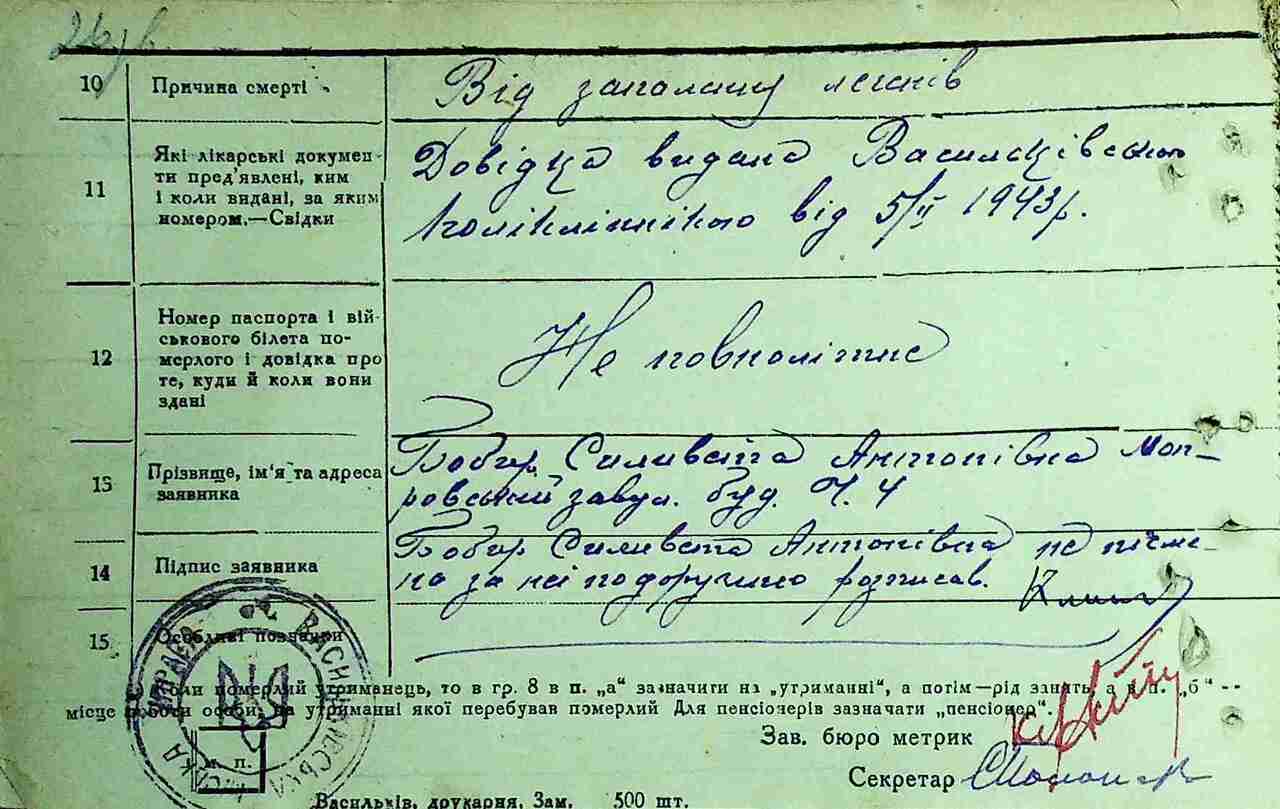 10 Причина смерті Від запаления легенів
11 Які лікарські докумен-
ти пред'явлені, ким
і коли видані, за яким
номером.—Свідки
Довідка видана Васильківською
поліклінікою від 5/II 1943р.
12 Номер паспорта і вій-
ськового білета по-
мерлого і довідка про
те, куди й коли вони
здані
Не повнолітнє
13 Прізвище, ім'я та адреса
заявника
Бобир Силивета Антонівна Моп-
ровський завул. буд. Ч. 4
14 Підпис заявника
Бобир Силивета Антонівна не письме-
на за неї по доручено розписав.
15 Особливі позначки
Коли померлий утриманець, то в гр. 8 в п. „а" зазначити на „утриманні", а потім—рід занять, а в п. „б" --
місце роботи особи, на утриманні якої перебував померлий Для пенсіонерів зазначати „пенсіонер".
Зав. бюро метрик
м. п.
Секретар
Васильків, друкарня, Зам. 500 шт.